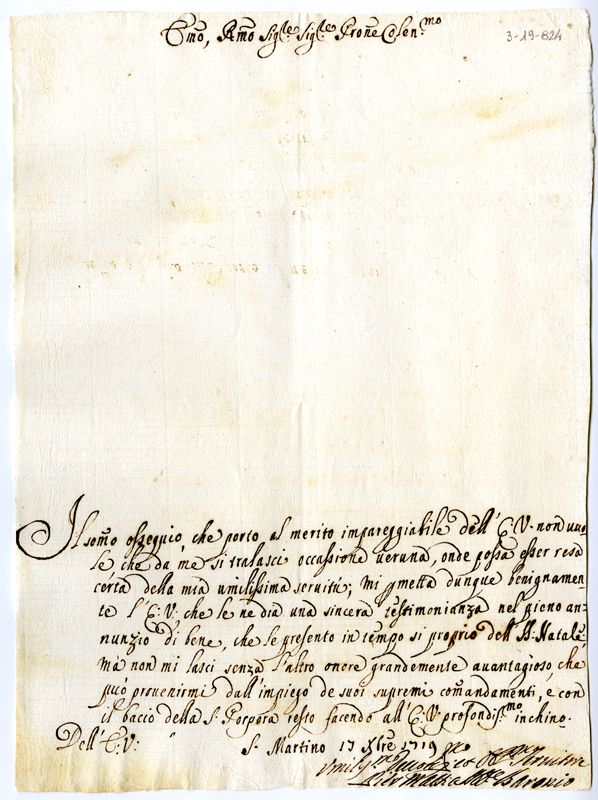 Emo, Rmo Sigre Sigre Prone Colenmo
3-19-824
Il somo ossequio, che porto al merito impareggiabile dell' E. V. non vuo
le che da me si tralasci occassione veruna, onde possa esser resa
certa della mia umilissima servitù; mi pmetta dunque benignamen
te l'E: V: che le ne dia una sincera testimonianza nel pieno an-
nunzio di bene, che le presento in tempo si proprio del S. Natale,
ma non mi lasci senza l'altro onore grandemente avantagioso, che
può provenirmi dall' impiego de suoi supremi comandamenti, e con
il bacio della S. Porpora resto facendo all' E. V. profondis.mo inchino.
Dell' E: V:
S. Martino 17 Xbre 1719
Servitore
Baronio